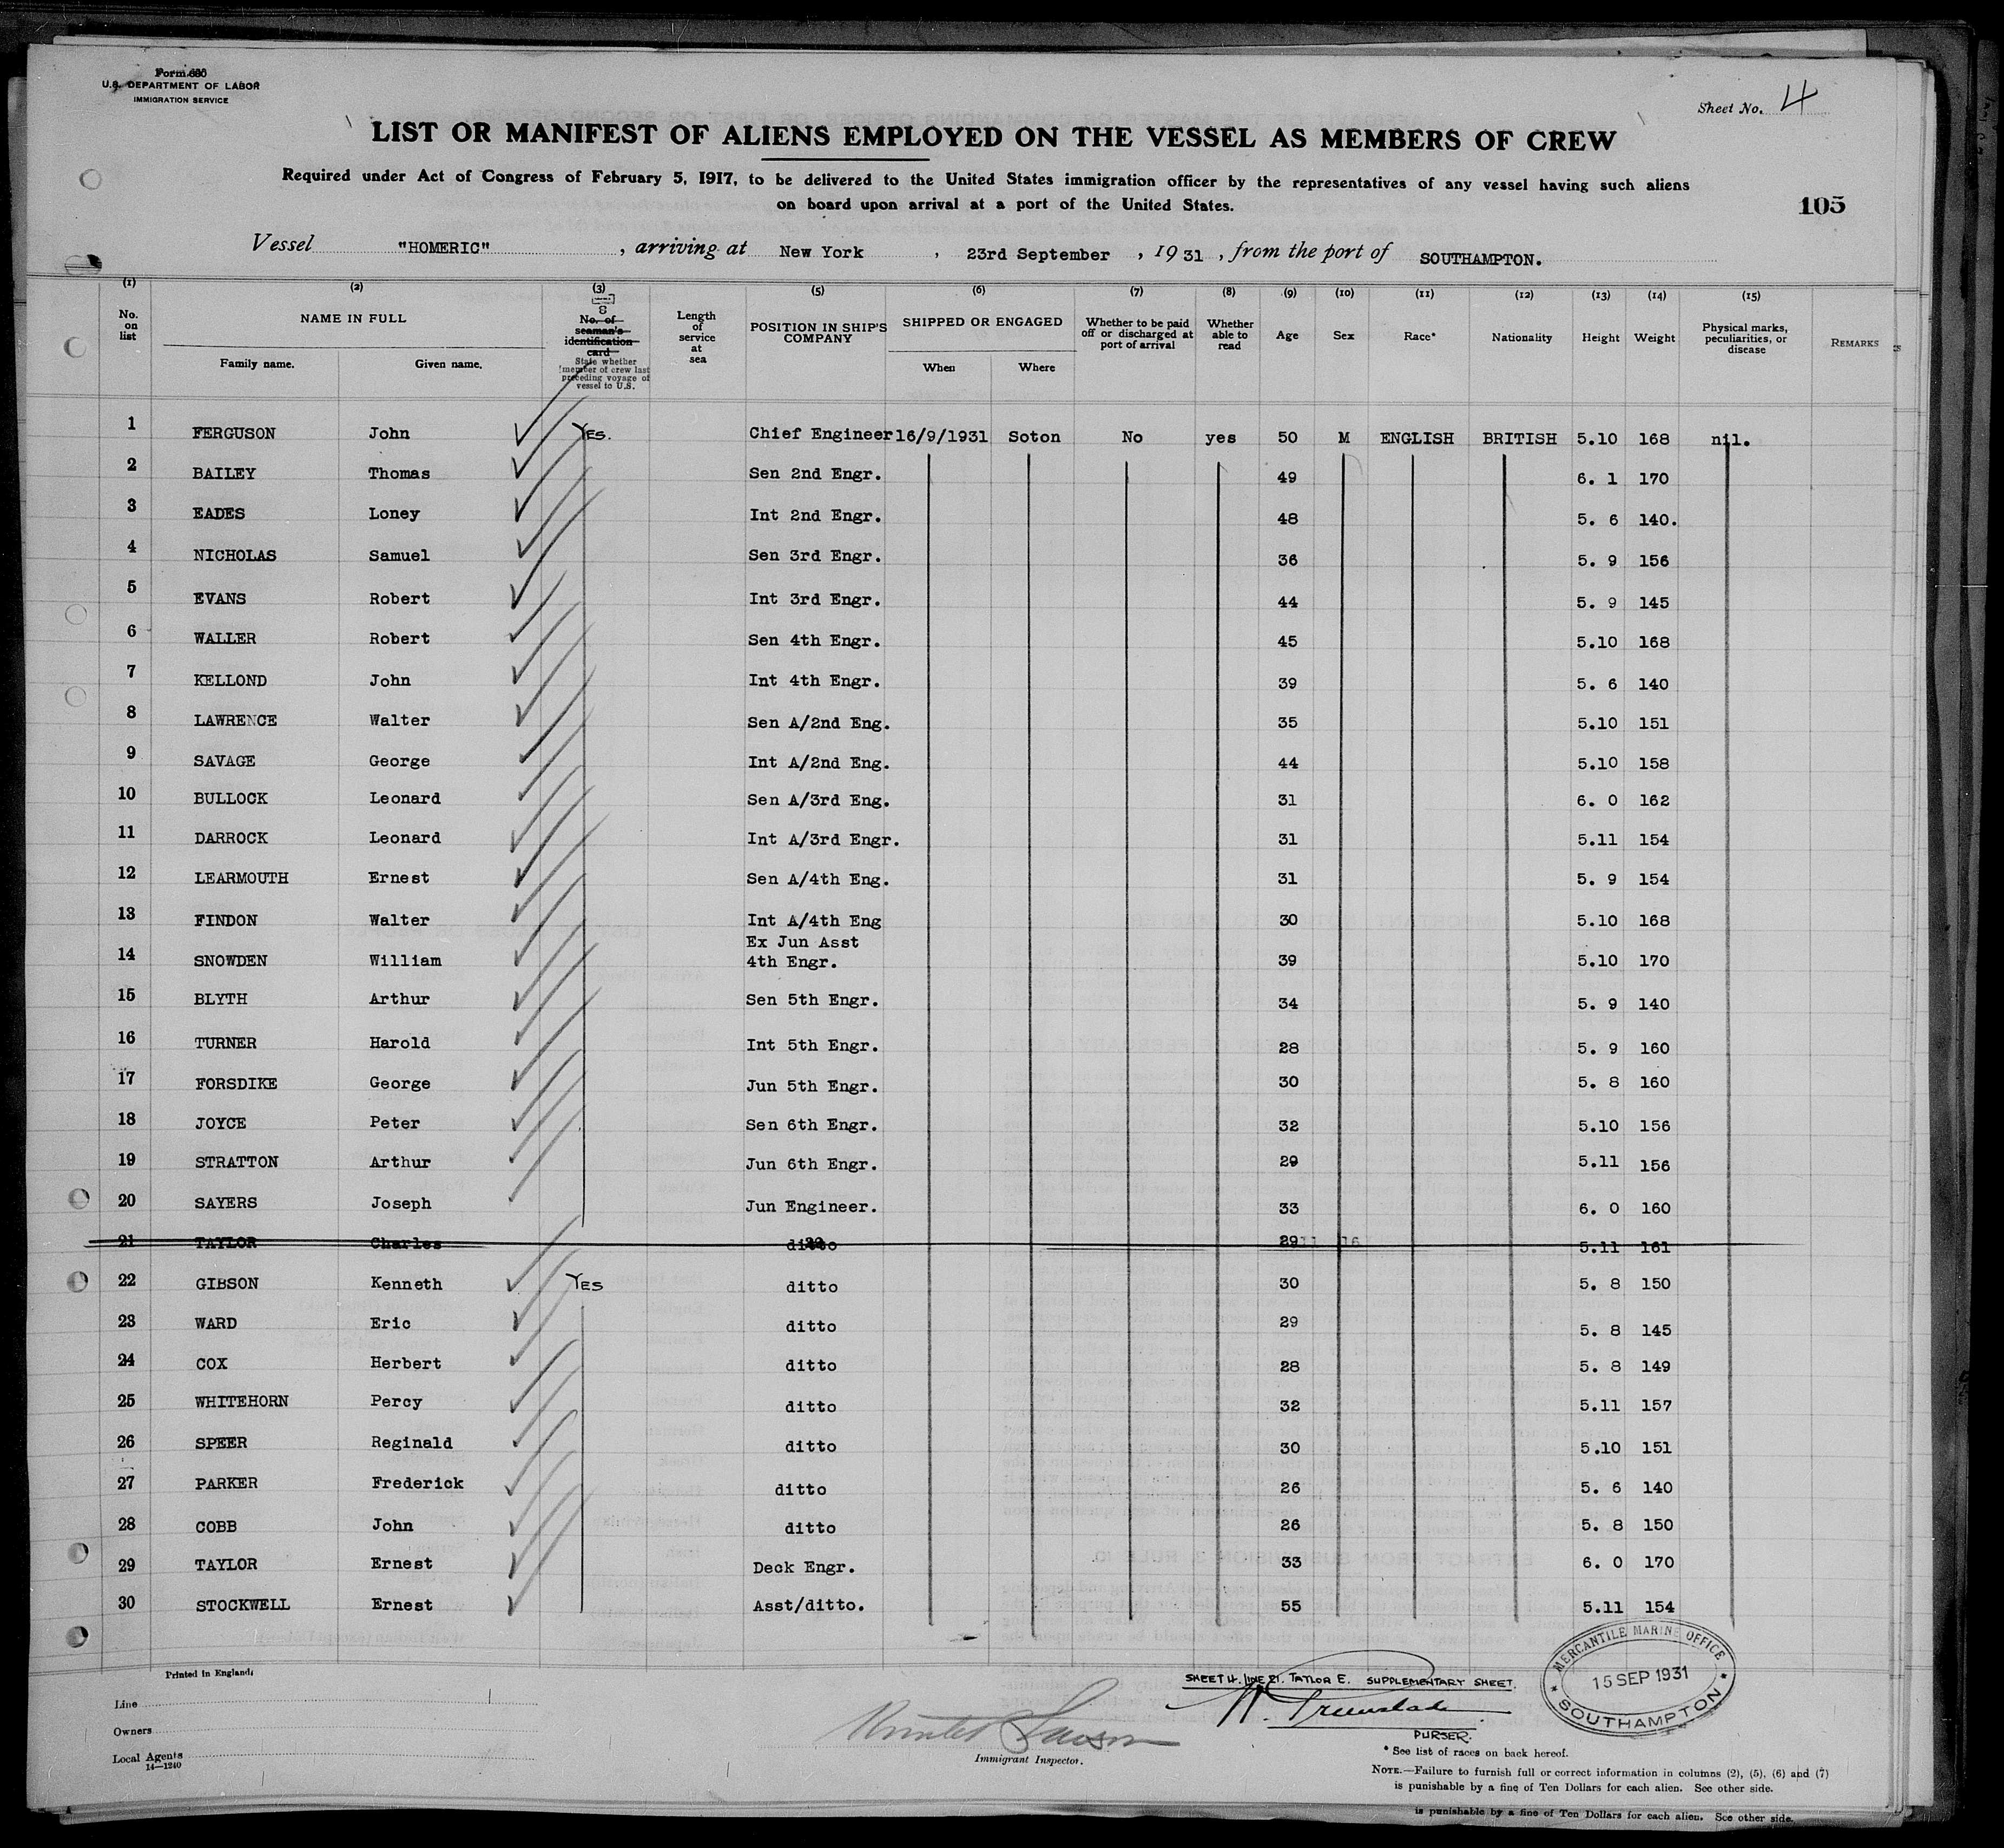 Form 680
U.S. DEPARTMENT OF LABOR
IMMIGRATION SERVICE
Sheet No. 4
LIST OR MANIFEST OF ALIENS EMPLOYED ON THE VESSEL AS MEMBERS OF CREW
Required under Act of Congress of February 5, 1917, to be delivered to the United States immigration officer by the representatives of any vessel having such aliens
on board upon arrival at a port of the United States.
105
Vessel "HOMERIC" , arriving at New York , 23rd September , 1931 , from the port of SOUTHAMPTON.
(1) (2) (3) (5) (6) (7) (8) (9) (10) (11) (12) (13) (14) (15)
No. on list NAME IN FULL Family name. Given name. No. of seaman's identification card State whether member of crew last preceding voyage of vessel to U.S. Length of service at sea POSITION IN SHIP'S COMPANY SHIPPED OR ENGAGED When Where Whether to be paid off or discharged at port of arrival Whether able to read Age Sex Race* Nationality Height Weight Physical marks, peculiarities, or disease REMARKS
1 FERGUSON John YES. Chief Engineer 16/9/1931 Soton No yes 50 M ENGLISH BRITISH 5.10 168 nil.
2 BAILEY Thomas Sen 2nd Engr. 49 6. 1 170
3 EADES Loney Int 2nd Engr. 48 5. 6 140.
4 NICHOLAS Samuel Sen 3rd Engr. 36 5. 9 156
5 EVANS Robert Int 3rd Engr. 44 5. 9 145
6 WALLER Robert Sen 4th Engr. 45 5.10 168
7 KELLOND John Int 4th Engr. 39 5. 6 140
8 LAWRENCE Walter Sen A/2nd Eng. 35 5.10 151
9 SAVAGE George Int A/2nd Eng. 44 5.10 158
10 BULLOCK Leonard Sen A/3rd Eng. 31 6. 0 162
11 DARROCK Leonard Int A/3rd Engr. 31 5.11 154
12 LEARMOUTH Ernest Sen A/4th Eng. 31 5. 9 154
13 FINDON Walter Int A/4th Eng 30 5.10 168
Ex Jun Asst
14 SNOWDEN William 4th Engr. 39 5.10 170
15 BLYTH Arthur Sen 5th Engr. 34 5. 9 140
16 TURNER Harold Int 5th Engr. 28 5. 9 160
17 FORSDIKE George Jun 5th Engr. 30 5. 8 160
18 JOYCE Peter Sen 6th Engr. 32 5.10 156
19 STRATTON Arthur Jun 6th Engr. 29 5.11 156
20 SAYERS Joseph Jun Engineer. 33 6. 0 160
21 TAYLOR Charles ditto 29 5.11 161
22 GIBSON Kenneth YES ditto 30 5. 8 150
23 WARD Eric ditto 29 5. 8 145
24 COX Herbert ditto 28 5. 8 149
25 WHITEHORN Percy ditto 32 5.11 157
26 SPEER Reginald ditto 30 5.10 151
27 PARKER Frederick ditto 26 5. 6 140
28 COBB John ditto 26 5. 8 150
29 TAYLOR Ernest Deck Engr. 33 6. 0 170
30 STOCKWELL Ernest Asst/ditto. 55 5.11 154
Printed in England.
SHEET 4. LINE 21. TAYLOR E. SUPPLEMENTARY SHEET.
PURSER.
MERCANTILE MARINE OFFICE
15 SEP 1931
SOUTHAMPTON
Line
Owners
Local Agents
14—1240
Immigrant Inspector.
* See list of races on back hereof.
NOTE.—Failure to furnish full or correct information in columns (2), (5), (6) and (7)
is punishable by a fine of Ten Dollars for each alien. See other side.
is punishable by a fine of Ten Dollars for each alien. See other side.